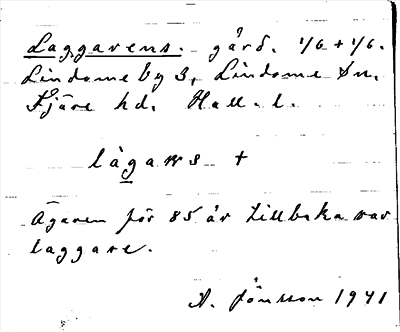 Laggarens. gård. 1/6 + 1/6.
Lindome by 3, Lindome sn.
Fjäre hd. Hall. l.
làgaṛṣ +
Ägaren för 85 år tillbaka var
laggare.
A. Jönsson 1941